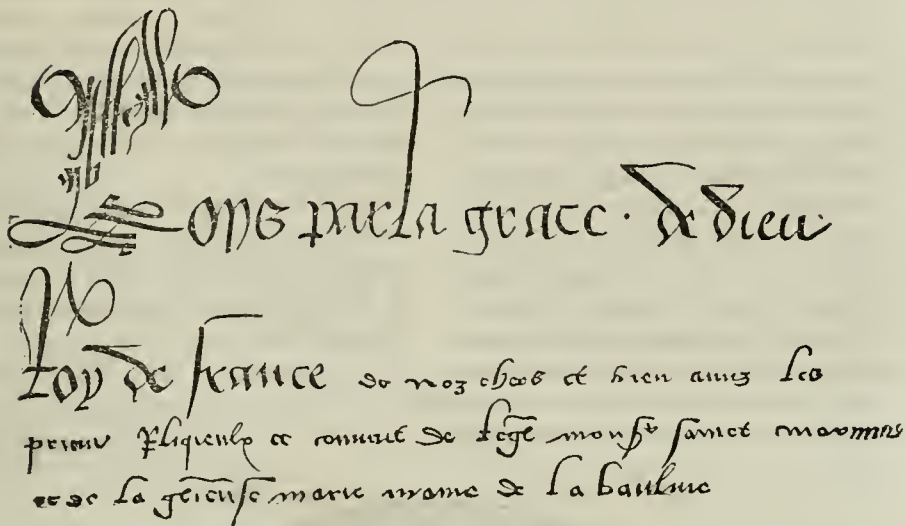 Loys par la grace · de dieu
Roy de france de noz chers et bien amez les
prieur et convent de legle monsr sainct
et de la glorieuse marie de la baulme